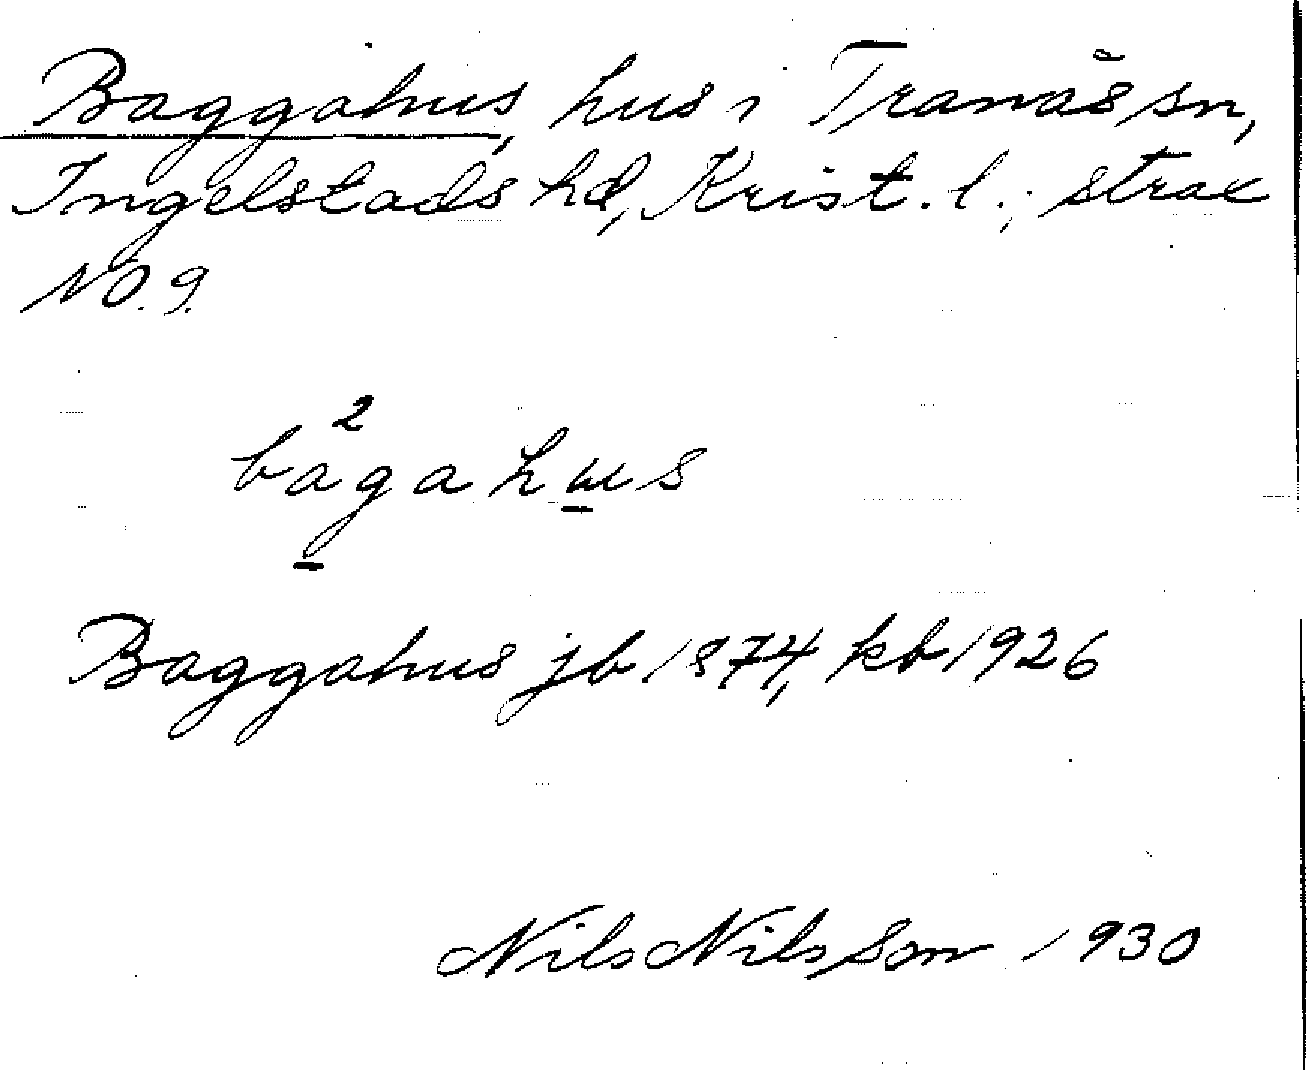 Baggahus, hus i Tranås sn,
Ingelstads hd, Krist. l.; strax
NO. 9.
2
bagahus
Baggahus jb 1874, kb 1926
Nils Nilsson 1930